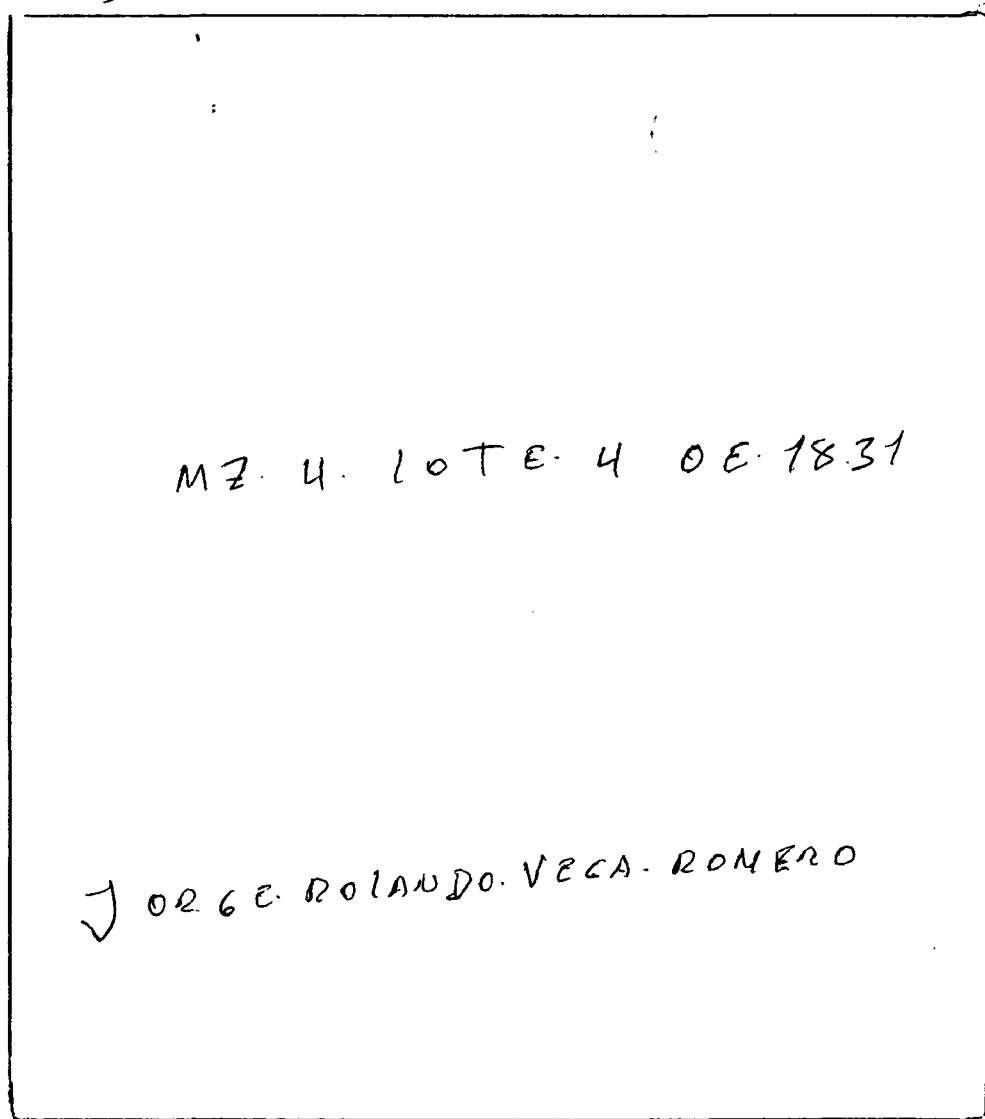 MZ. 4. LOTE. 4 OE. 18.31
JORGE. ROLANDO. VEGA. ROMERO